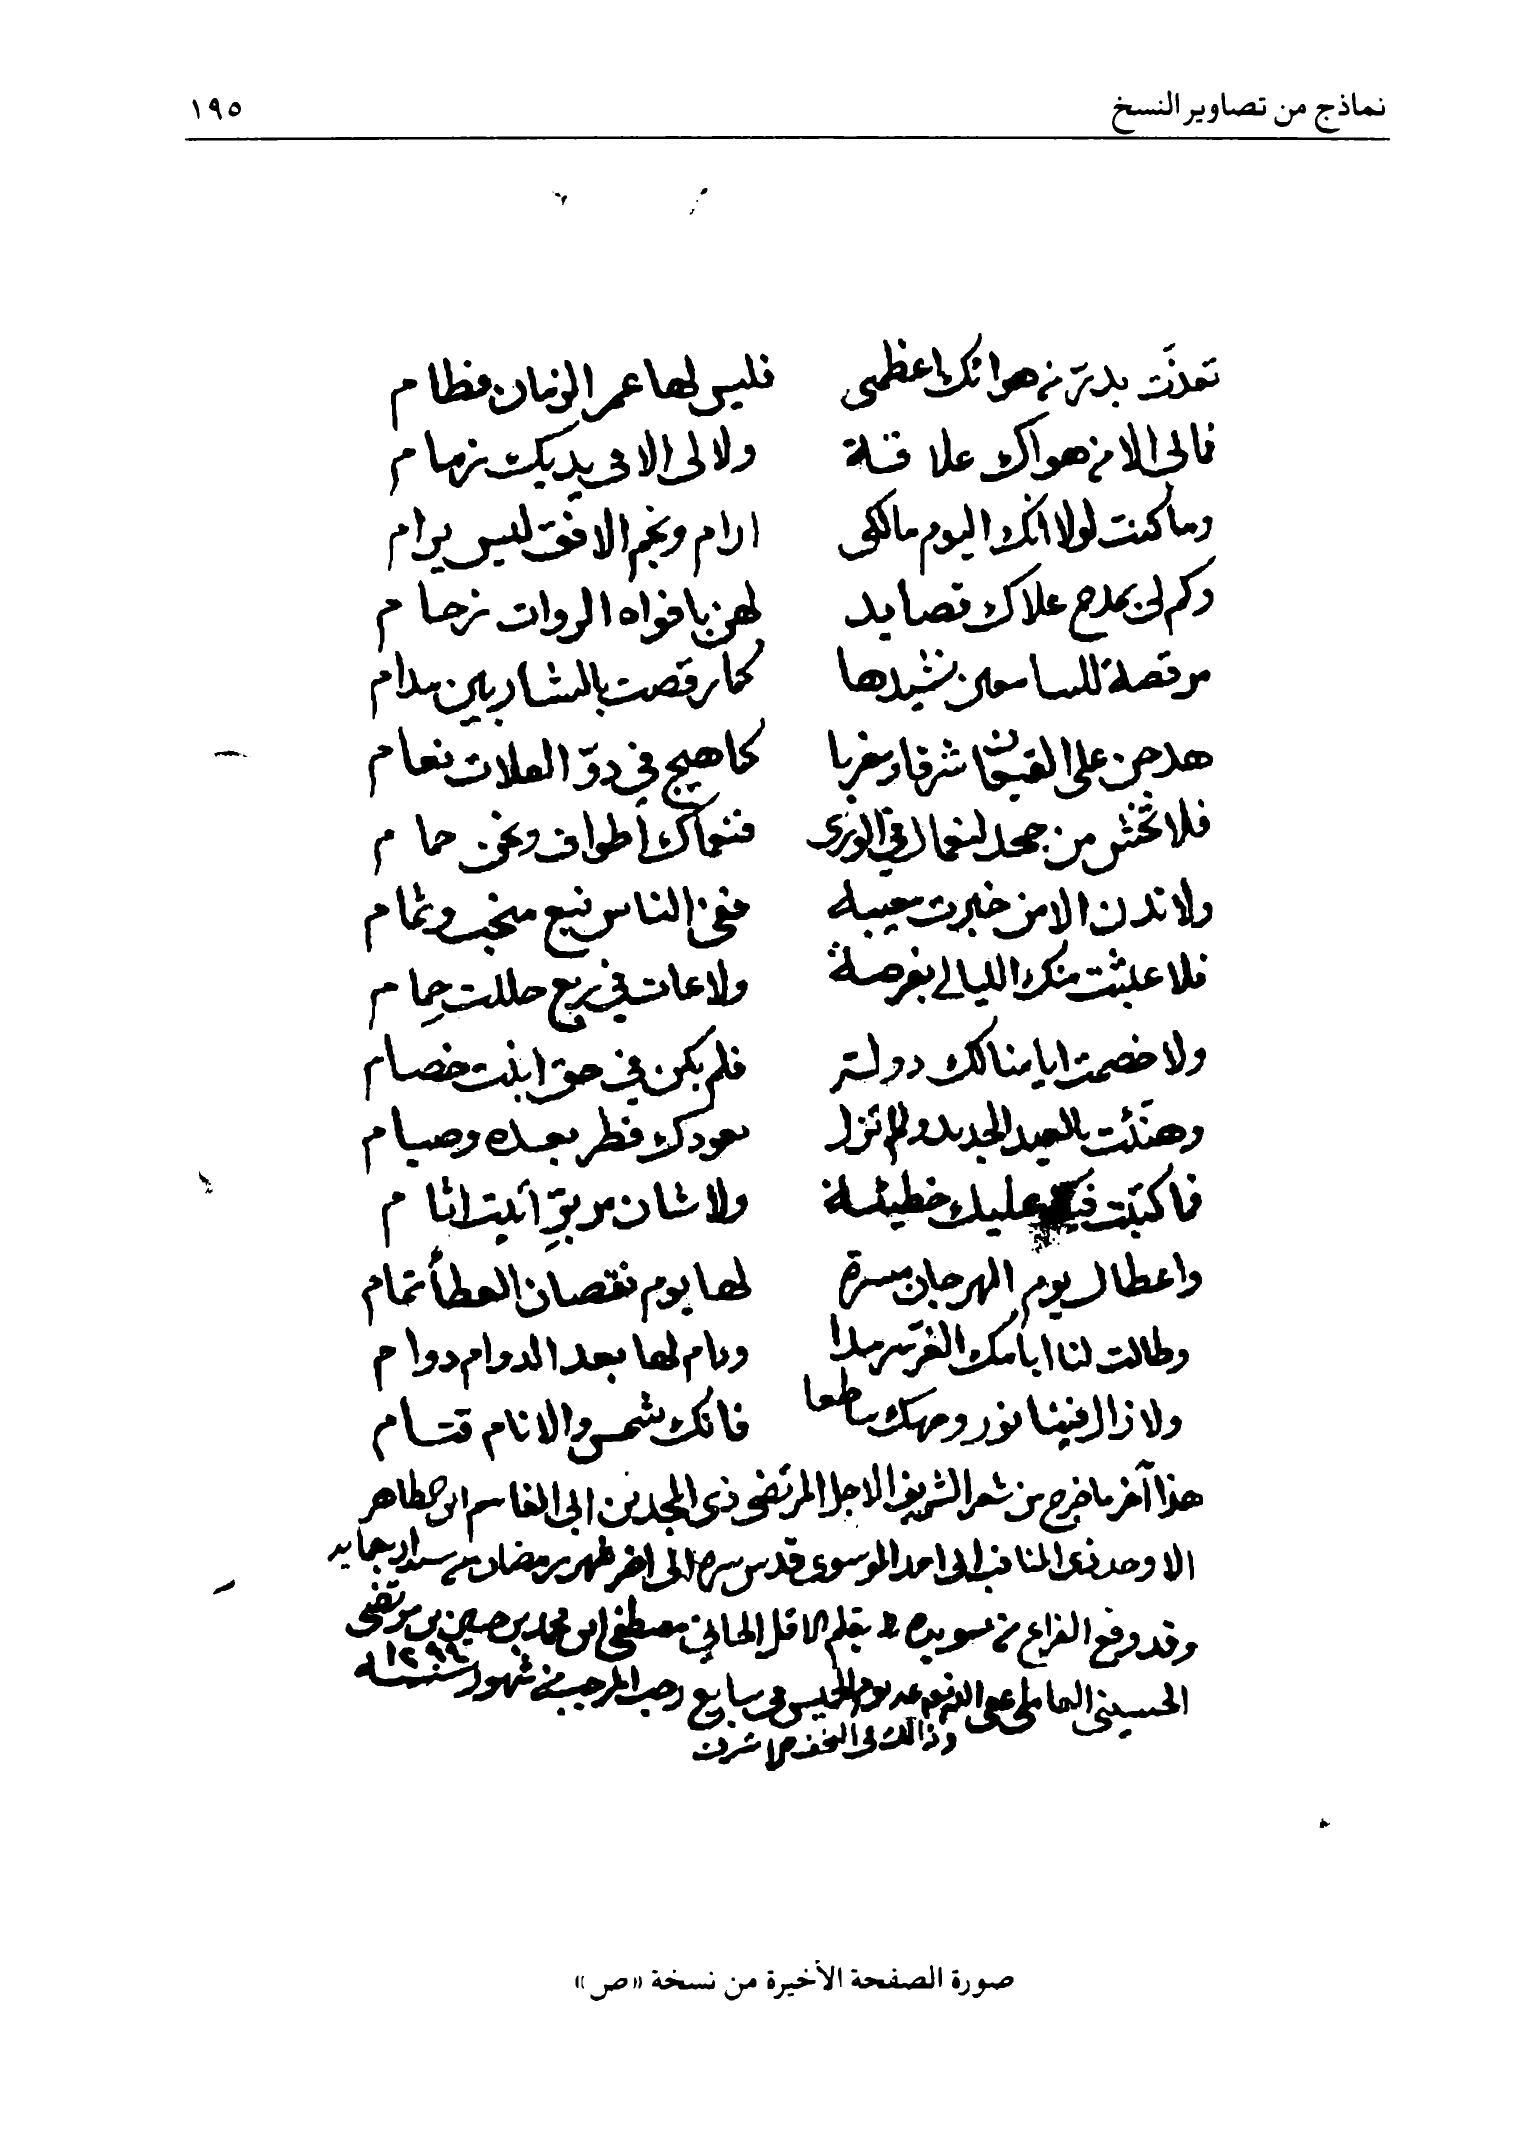 نماذج من تصاوير النسخ ١٩٥
تغذت بدر من هوائك اعظمى فليس لها عمر الزمان فطام
فمالى الا من هواك علاقة ولا لى الا فى يديك زمام
وما كنت لولا انك اليوم مالكى ارام ونجم الافق ليس يرام
وكم لى بمدح علاك قصايد لهن بافواه الروات زحام
مرقصة للسامعين نشيدها كما رقصت بالشاربين مدام
هدجن على القيعان شرقا ومغربا كما هيج في دوّ الفلات نعام
فلا تخش من جحد لنعماك في الورى فنعماك أطواق ونحن حمام
ولا تدن الا من خبرت مغيبه ففى الناس نبع منجب وثمام
فلا عبثت منك الليالي بفرصة ولا عاث في ربع حللت حِمام
ولا خصمت ايامنا لك دولة فلم يكن في حق ابنت خصام
وهنّئت بالعيد الجديد ولم تزل يعودك فطر بعده وصيام
فما كتبت فيه عليك خطيئة ولا شان من برّ أتيت اثام
واعطاك يوم المهرجان مسرة لها يوم نقصان العطاء تمام
وطالت لنا ايامك الغر سرمدا ودام لها بعد الدوام دوام
ولا زال فينا نور وجهك ساطعا فانك شمس والانام قتام
هذا آخر ما خرج من شعر الشريف الاجل المرتضى ذى المجدين ابى القاسم ابن الطاهر
الاوحد ذى المناقب ابى احمد الموسوى قدس سره الى اخر شهر رمضان من سنة اربعمايه
وقد وقع الفراغ من تسويده بقلم الاقل الجاني مصطفى ابن محمد بن حسين بن مرتضى
الحسينى العاملى عفى الله عنهم يوم الخميس فى سابع رجب المرجب من شهور سنة ١٢٩٩
وذالك فى النجف الاشرف
صورة الصفحة الأخيرة من نسخة «ص»